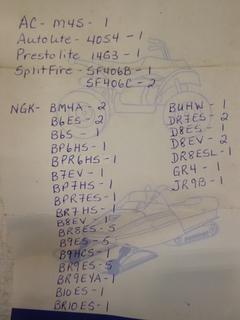 AC- M45 - 1
Autolite - 4054 - 1
Prestolite - 14G3 - 1
SplitFire - SF406B - 1
SF406C - 2
NGK- BM4A - 2
B6ES - 2
B6S - 1
BP6HS - 1
BPR6HS - 1
B7EV - 1
BP7HS - 1
BPR7ES - 1
BR7HS - 1
B8EV - 1
BR8ES - 5
B9ES - 5
B9HCS - 1
BR9ES - 5
BR9EYA - 1
B10ES - 1
BR10ES - 1
BUHW - 1
DR7ES - 2
D8ES - 1
D8EV - 2
DR8ESL - 1
GR4 - 1
JR9B - 1